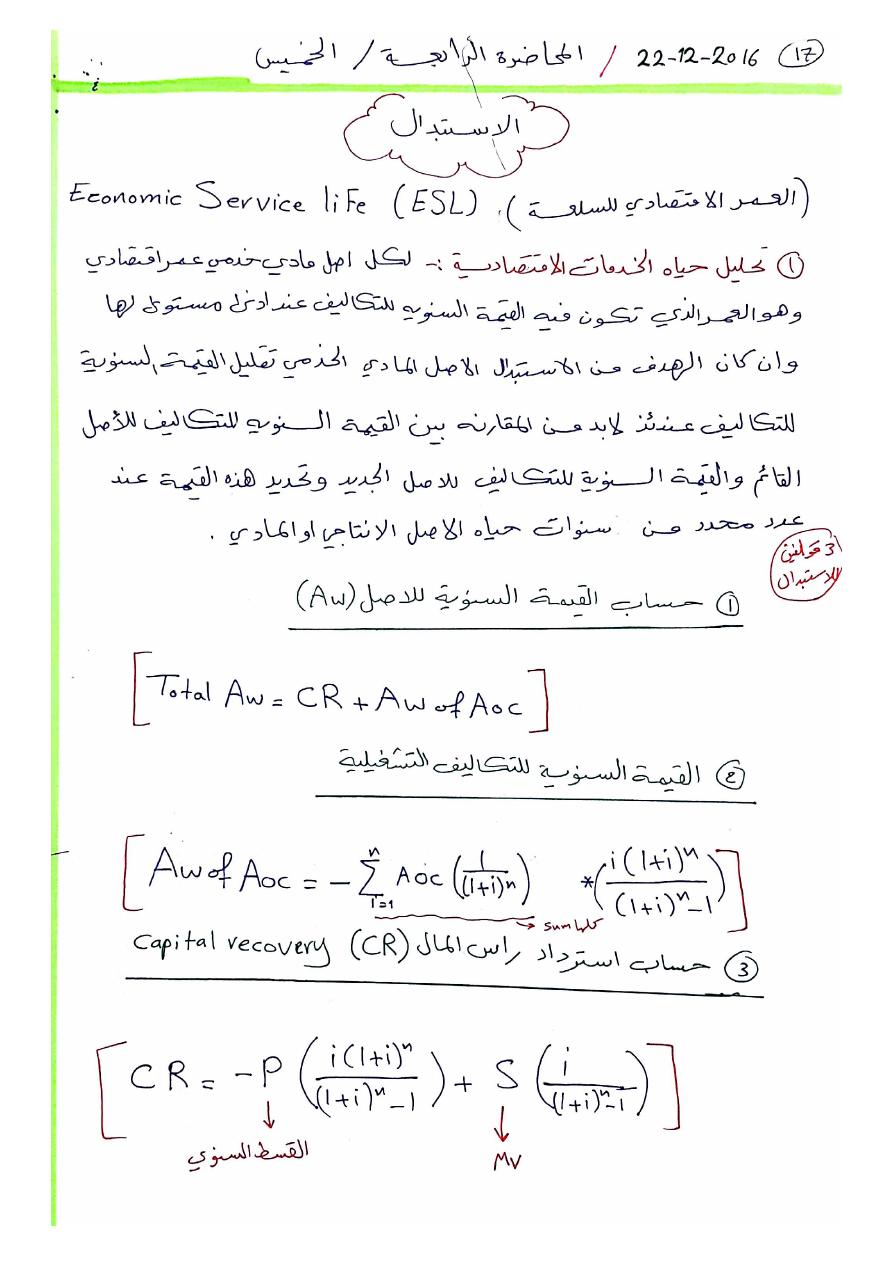 (17) 22-12-2016 / المحاضرة الرابعة / الخميس
الاستبدال
(العمر الاقتصادي للسلعة). Economic Service life (ESL)
① تحليل حياه الخدمات الاقتصادية :- لكل اصل مادي خدمي عمر اقتصادي
وهو العمر الذي تكون فيه القيمة السنويه للتكاليف عند ادنى مستوى لها
وان كان الهدف من الاستبدال الاصل المادي الخدمي تقليل القيمة السنوية
للتكاليف عندئذ لابد من المقارنه بين القيمة السنويه للتكاليف للأصل
القائم والقيمة السنوية للتكاليف للاصل الجديد وتحديد هذه القيمة عند
عدد محدد من سنوات حياه الاصل الانتاجي او المادي .
3 قوانين
للاستبدال
① حساب القيمة السنوية للاصل (Aw)
[Total Aw = CR + Aw of Aoc]
② القيمة السنوية للتكاليف التشغيلية
[Aw of Aoc = - ∑ⁿᵢ₌₁ Aoc (1/(1+i)ⁿ) * (i(1+i)ⁿ/(1+i)ⁿ-1)]
كلها sum
③ حساب استرداد راس المال (CR) Capital recovery
[CR = -P (i(1+i)ⁿ/(1+i)ⁿ-1) + S (i/(1+i)ⁿ-1)]
القسط السنوي
MV